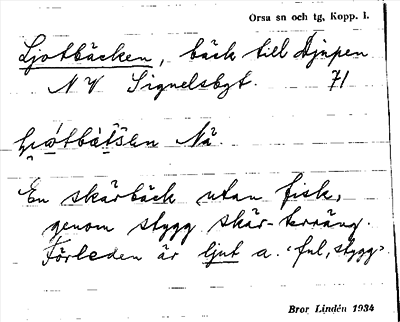 Orsa sn och tg, Kopp. l.
Ljotbäcken, bäck till Djupen
NV Signelsbyt. 71
Nä.
En skärbäck utan fisk,
genom stygg skär-terräng.
Förleden är ljut a. ‹ful, stygg›.
Bror Lindén 1934